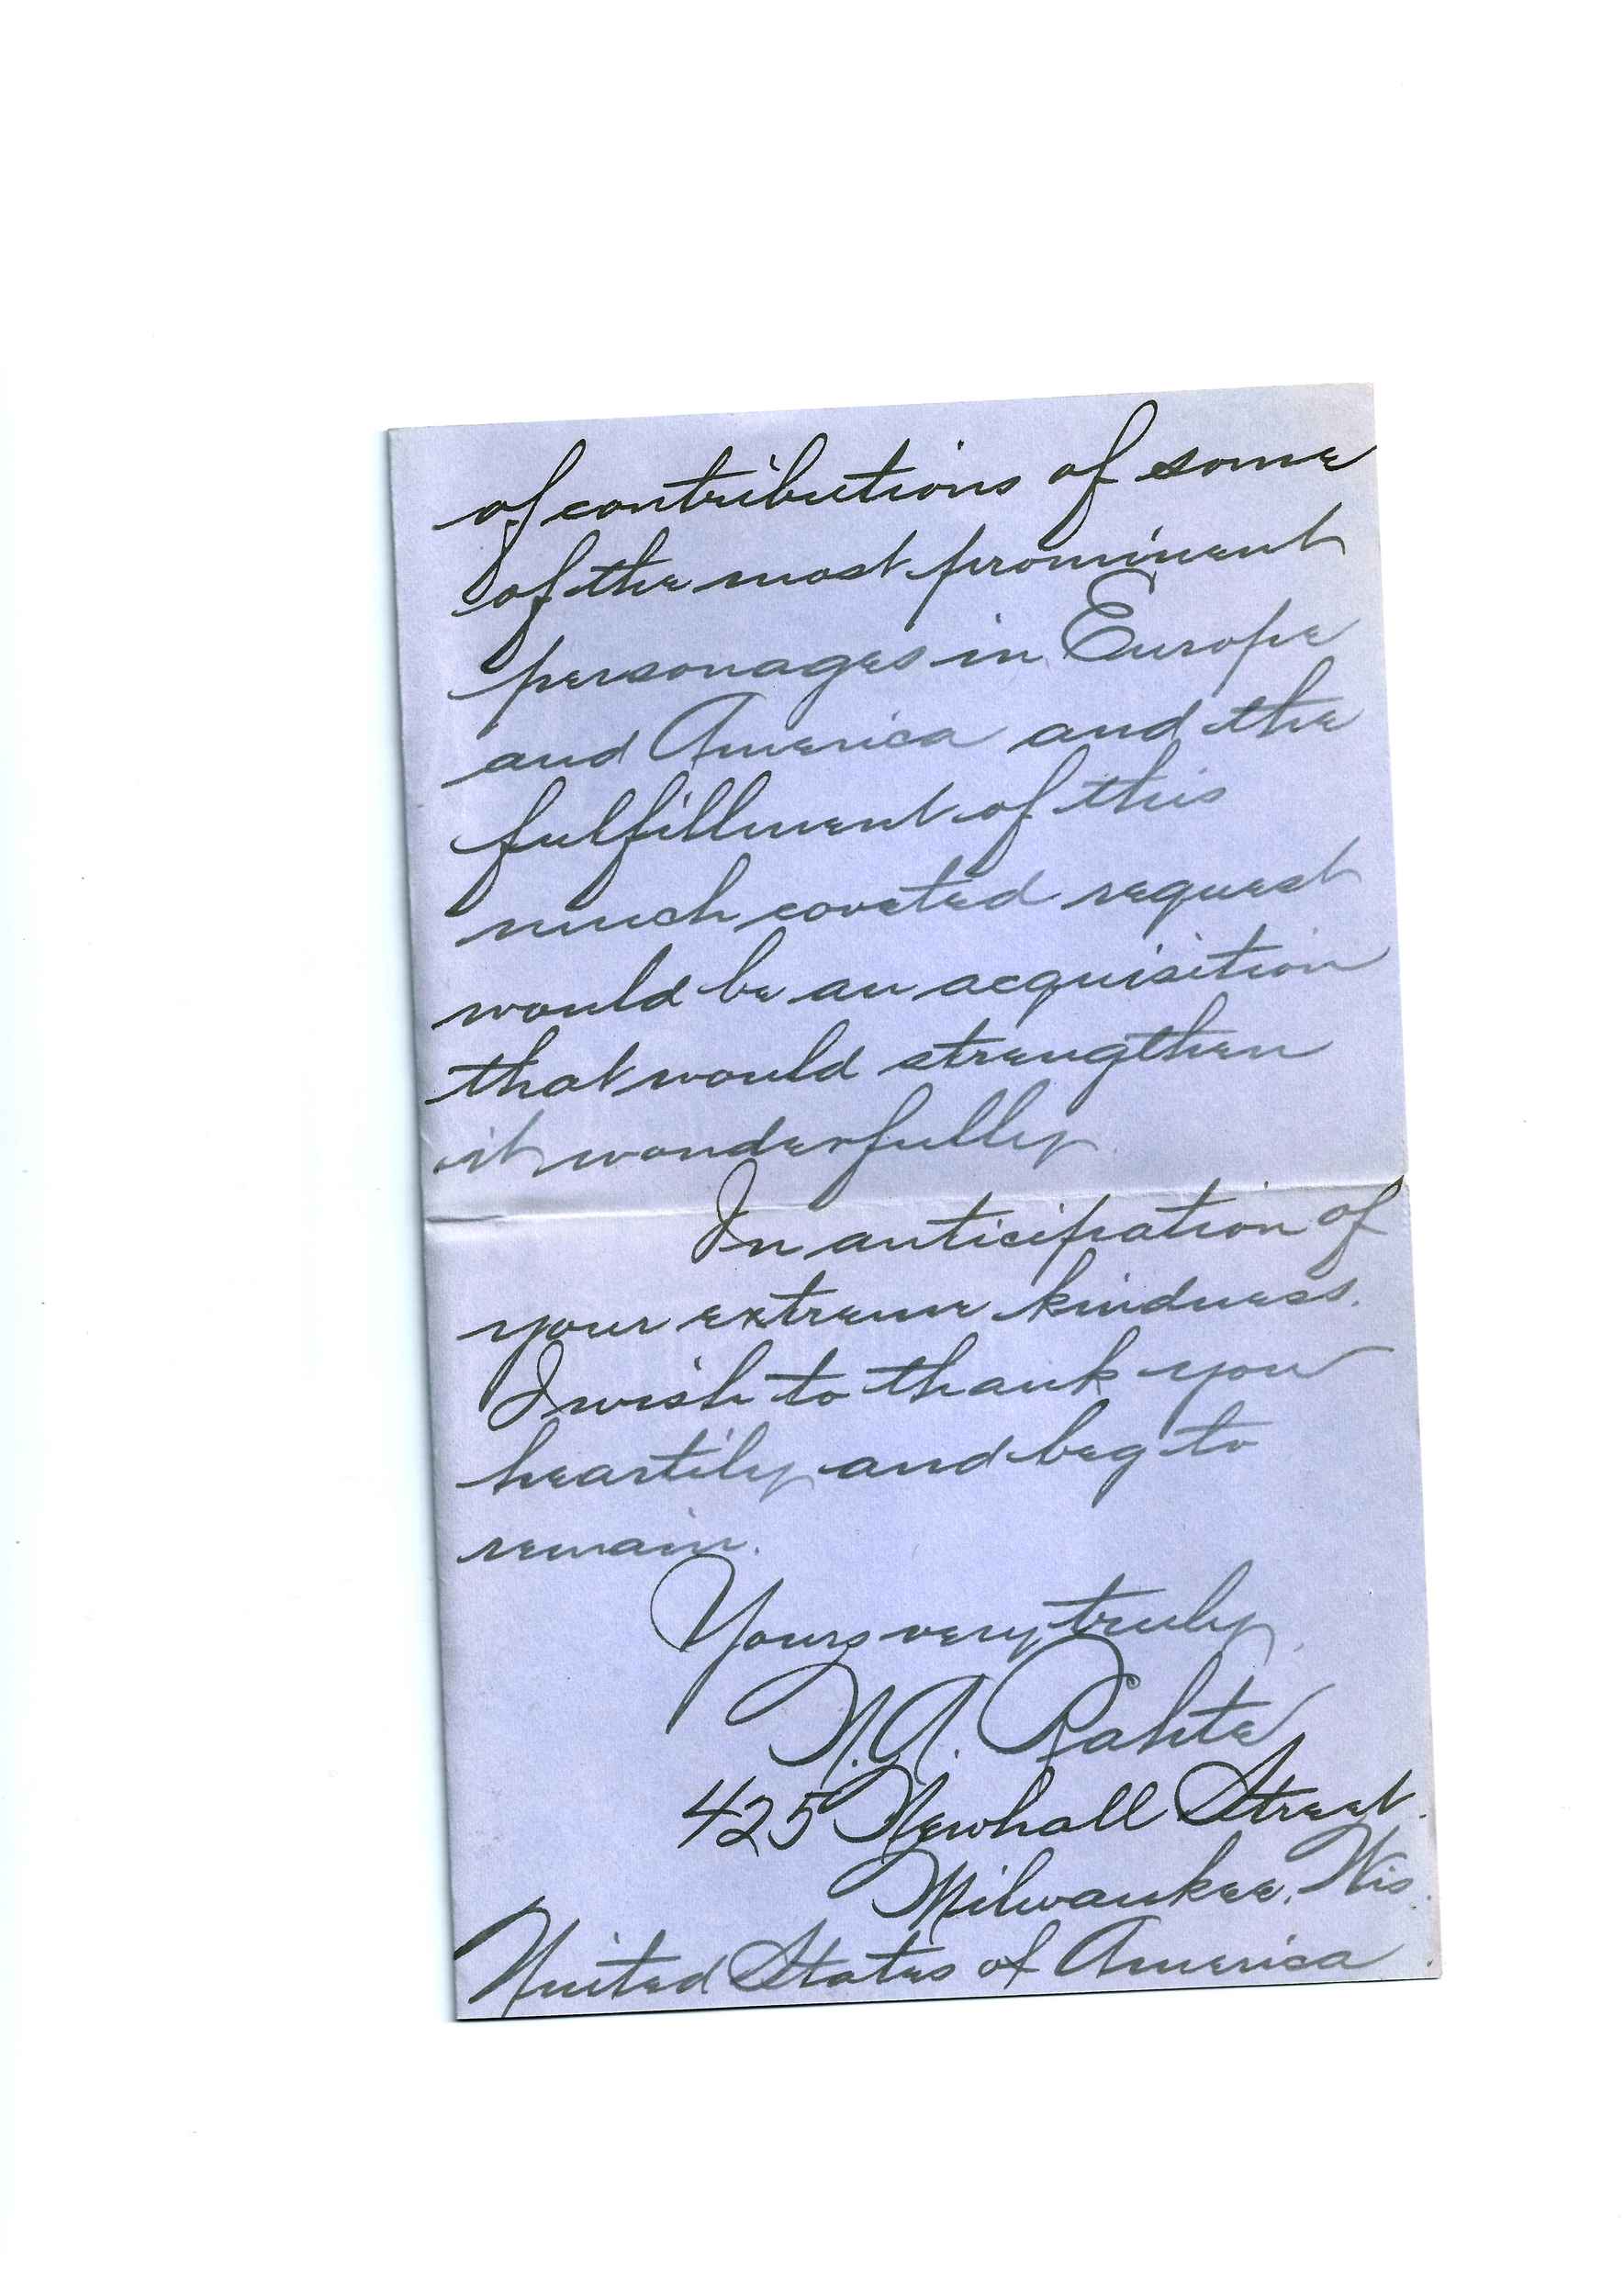 of contributions of some
of the most prominent
personages in Europe
and America and the
fulfillment of this
much coveted request
would be an acquisition
that would strengthen
it wonderfully.
In anticipation of
your extreme kindness.
I wish to thank you
heartily and beg to
remain.
Yours very truly,
425 Newhall Street.
Milwaukee, Wis.
United States of America.